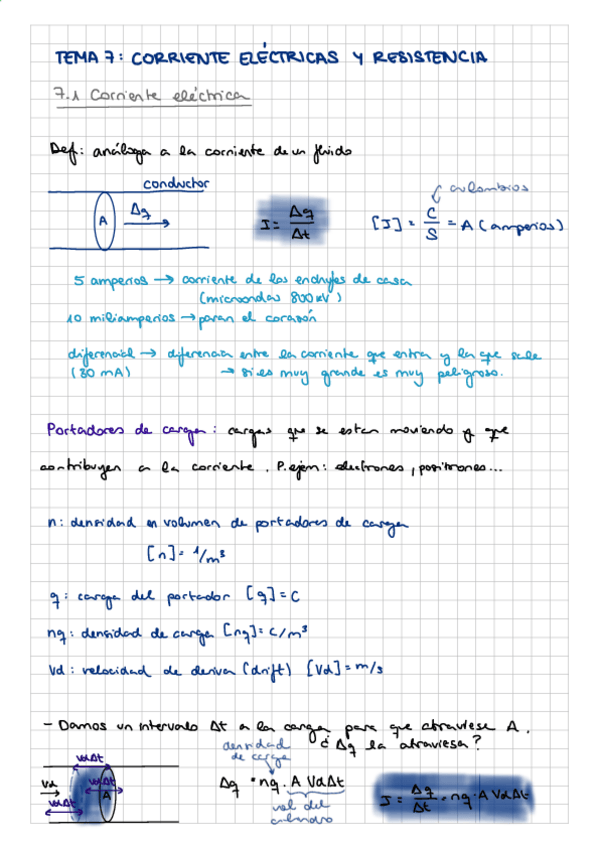 TEMA 7: CORRIENTE ELÉCTRICAS Y RESISTENCIA
7.1 Corriente eléctrica
Def: análoga a la corriente de un fluido
conductor
A Δq
I = Δq/Δt
culombios
[I] = C/S = A (amperios)
5 amperios → corriente de los enchufes de casa
(microondas 800 kV)
10 miliamperios → paran el corazón
diferencial → diferencia entre la corriente que entra y la que sale
(30 mA) → si es muy grande es muy peligroso.
Portadores de carga: cargas que se estan moviendo y que
contribuyen a la corriente. P.ejem: electrones, positrones...
n: densidad en volumen de portadores de carga
[n] = 1/m³
q: carga del portador [q] = C
nq: densidad de carga [nq] = C/m³
Vd: velocidad de deriva (drift) [Vd] = m/s
- Damos un intervalo Δt a la carga para que atraviese A.
¿Δq la atraviesa?
densidad
de carga
VdΔt
Vd VdΔt A
VdΔt
Δq = nq · A VdΔt
vol del
cilindro
I = Δq/Δt = nq · A VdΔt